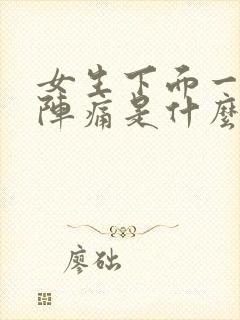 女生下而一
陣痛是什麼
廖础